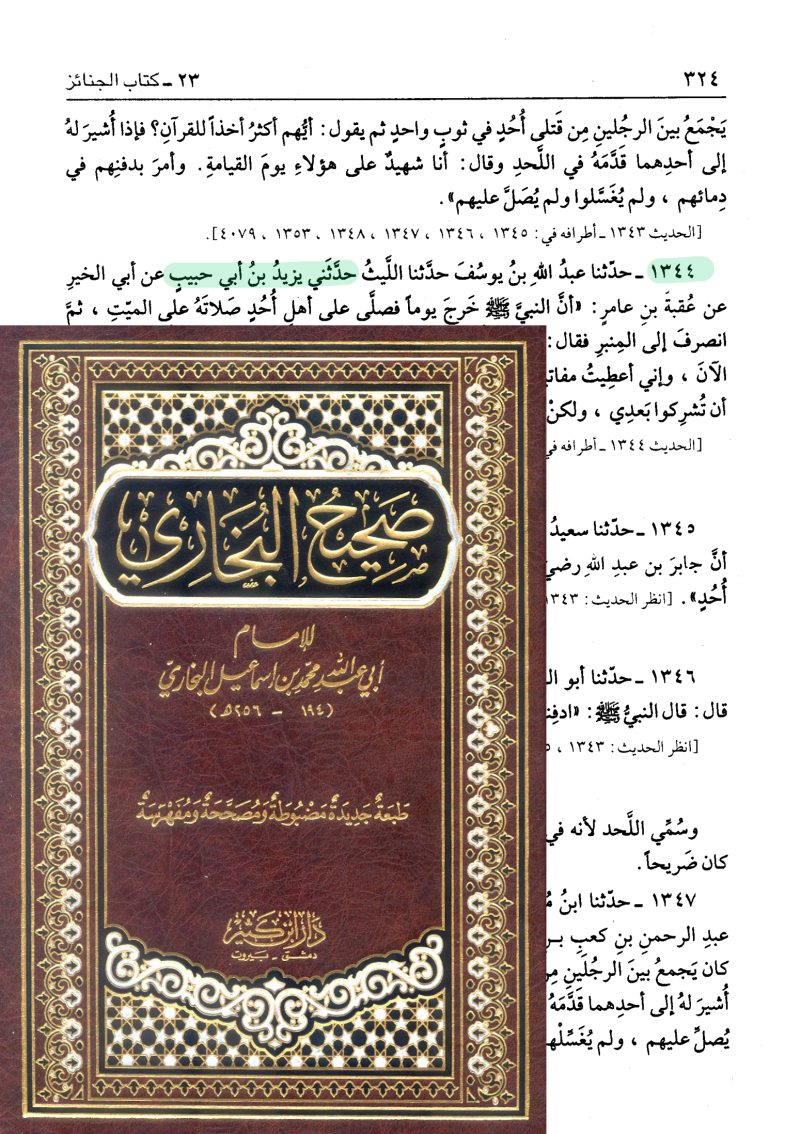 ٣٢٤
٢٣ ـ كتاب الجنائز
يَجْمَعُ بينَ الرجُلينِ مِن قَتلى أُحُدٍ في ثوبٍ واحدٍ ثم يقول: أيُّهم أكثرُ أخذاً للقرآنِ؟ فإذا أُشيرَ لهُ
إلى أحدِهما قَدَّمَهُ في اللَّحدِ وقال: أنا شهيدٌ على هؤلاءِ يومَ القيامةِ. وأمرَ بدفنِهم في
دِمائهم ، ولم يُغَسَّلوا ولم يُصَلَّ عليهم».
[الحديث ١٣٤٣ ـ أطرافه في: ١٣٤٥ ، ١٣٤٦ ، ١٣٤٧ ، ١٣٤٨ ، ١٣٥٣ ، ٤٠٧٩].
١٣٤٤ ـ حدَّثنا عبدُ اللهِ بنُ يوسُفَ حدَّثنا اللَّيثُ حدَّثَني يزيدُ بنُ أبي حبيبٍ عن أبي الخيرِ
عن عُقبةَ بنِ عامرٍ: «أنَّ النبيَّ ﷺ خَرجَ يوماً فصلَّى على أهلِ أُحُدٍ صَلاتَهُ على الميّتِ ، ثمَّ
انصرفَ إلى المِنبرِ فقال:
الآنَ ، وإني أُعطِيتُ مفاتي
أن تُشرِكوا بَعدِي ، ولكنْ
[الحديث ١٣٤٤ ـ أطرافه في
١٣٤٥ ـ حدّثنا سعيدُ
أنَّ جابرَ بن عبدِ اللهِ رضيَ
أُحُدٍ». [انظر الحديث: ١٣٤٣
١٣٤٦ ـ حدّثنا أبو ال
قال: قال النبيُّ ﷺ: «ادفِنـ
[انظر الحديث: ١٣٤٣ ،
وسُمِّي اللَّحد لأنه في
كان ضَريحاً.
١٣٤٧ ـ حدّثنا ابنُ
عبدِ الرحمنِ بنِ كعبِ بـ
كان يَجمعُ بينَ الرجُلينِ مِن
أُشيرَ لهُ إلى أحدِهما قدَّمَهُ
يُصلِّ عليهم ، ولم يُغَسِّلْهـ
صَحِيحُ البُخَارِي
للإمام
أبي عبد الله محمد بن اسماعيل البخاريّ
(١٩٤ - ٢٥٦هـ)
طَبعَةٌ جَدِيدَةٌ مَضْبُوطَةٌ وَمُصَحَّحَةٌ وَمُفَهْرَسَةٌ
دار ابن كثير
دمشق - بيروت